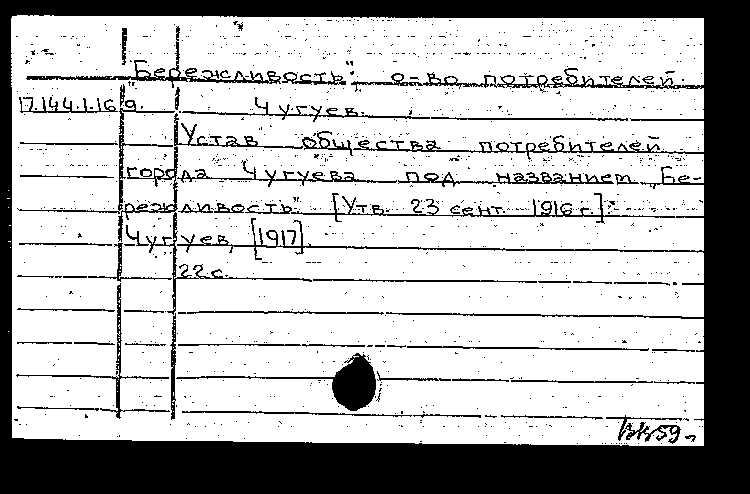 "Бережливость", о-во потребителей.
17.144.1.169. Чугуев.
Устав общества потребителей
города Чугуева под названием "Бе-
режливость". [Утв. 23 сент. 1916 г.].
Чугуев, [1917].
22 с.